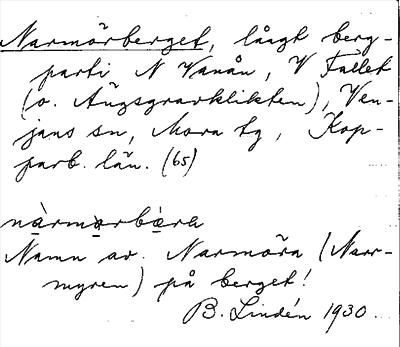 Narmörberget, lågt berg-
parti N Vanån, V Fallet
(o. Ängsgravklikten), Ven-
jans sn, Mora tg, Kop-
parb. län. (65)
nàrmorbæ̀re
Namn av. Narmöra (Narr-
myren) på berget!
B. Lindén 1930.